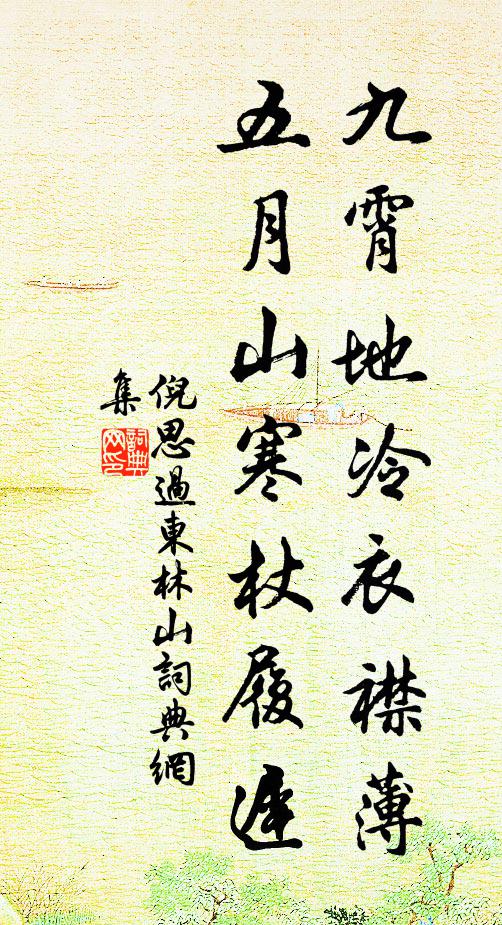 九霄地冷衣襟薄
五月山寒杖履遲
倪思過東林山詞典網
集
詞典
网印